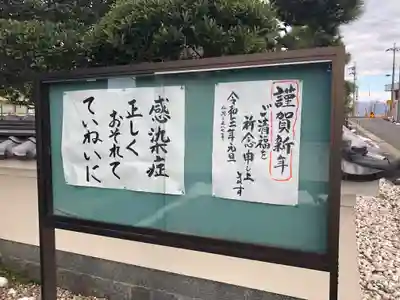 謹賀新年
ご清福を
祈念申し上
ます
令和三年元旦
感染症
正しく
おそれて
ていねいに